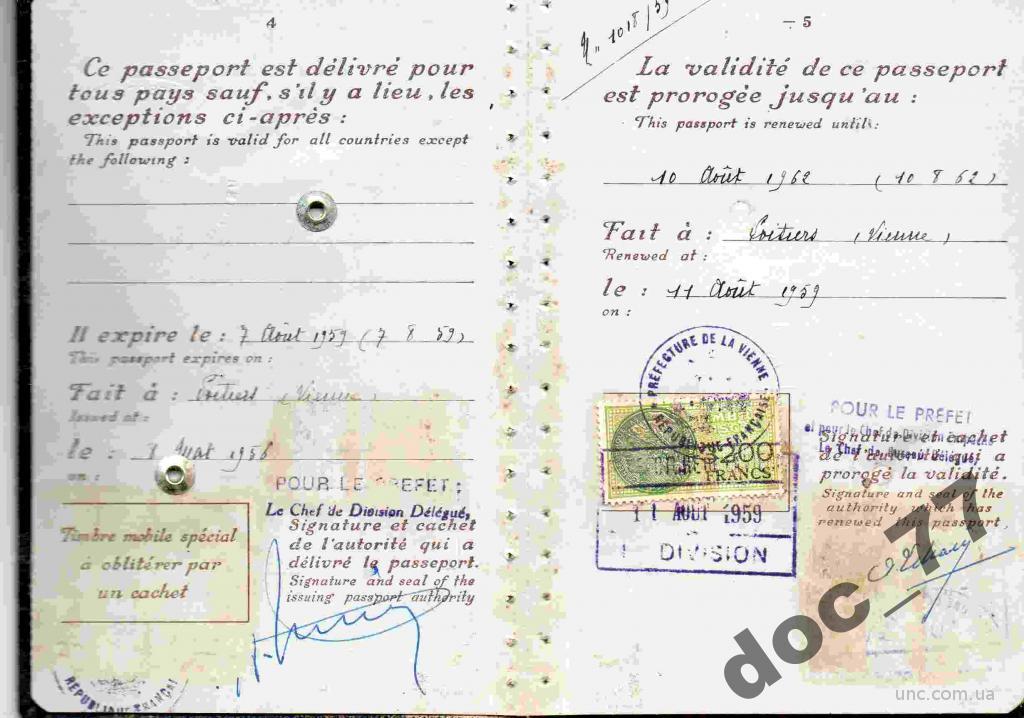 4
Ce passeport est délivré pour
tous pays sauf, s'il y a lieu, les
exceptions ci-après :
This passport is valid for all countries except
the following :
Il expire le : 7 Août 1959 (7 8 59)
This passport expires on :
Fait à : Poitiers (Vienne)
Issued at :
le : 1956
on :
Timbre mobile spécial
à oblitérer par
un cachet
POUR LE PREFET :
Le Chef de Division Délégué,
Signature et cachet
de l'autorité qui a
délivré le passeport.
Signature and seal of the
issuing passport authority
REPUBLIQUE FRANÇAI
5
1018/59
La validité de ce passeport
est prorogée jusqu'au :
This passport is renewed until :
10 Août 1962 (10 8 62)
Fait à : Poitiers (Vienne)
Renewed at :
le : 11 Août 1959
on :
PRÉFECTURE DE LA VIENNE
REPUBLIQUE FRANÇAISE
200
FRANCS
11 AOUT 1959
1 DIVISION
POUR LE PRÉFET
et pour le Chef de Division
Le Chef de Bureau Délégué,
Signature et cachet
de l'autorité qui a
prorogé la validité.
Signature and seal of the
authority which has
renewed this passport
doc_77
unc.com.ua